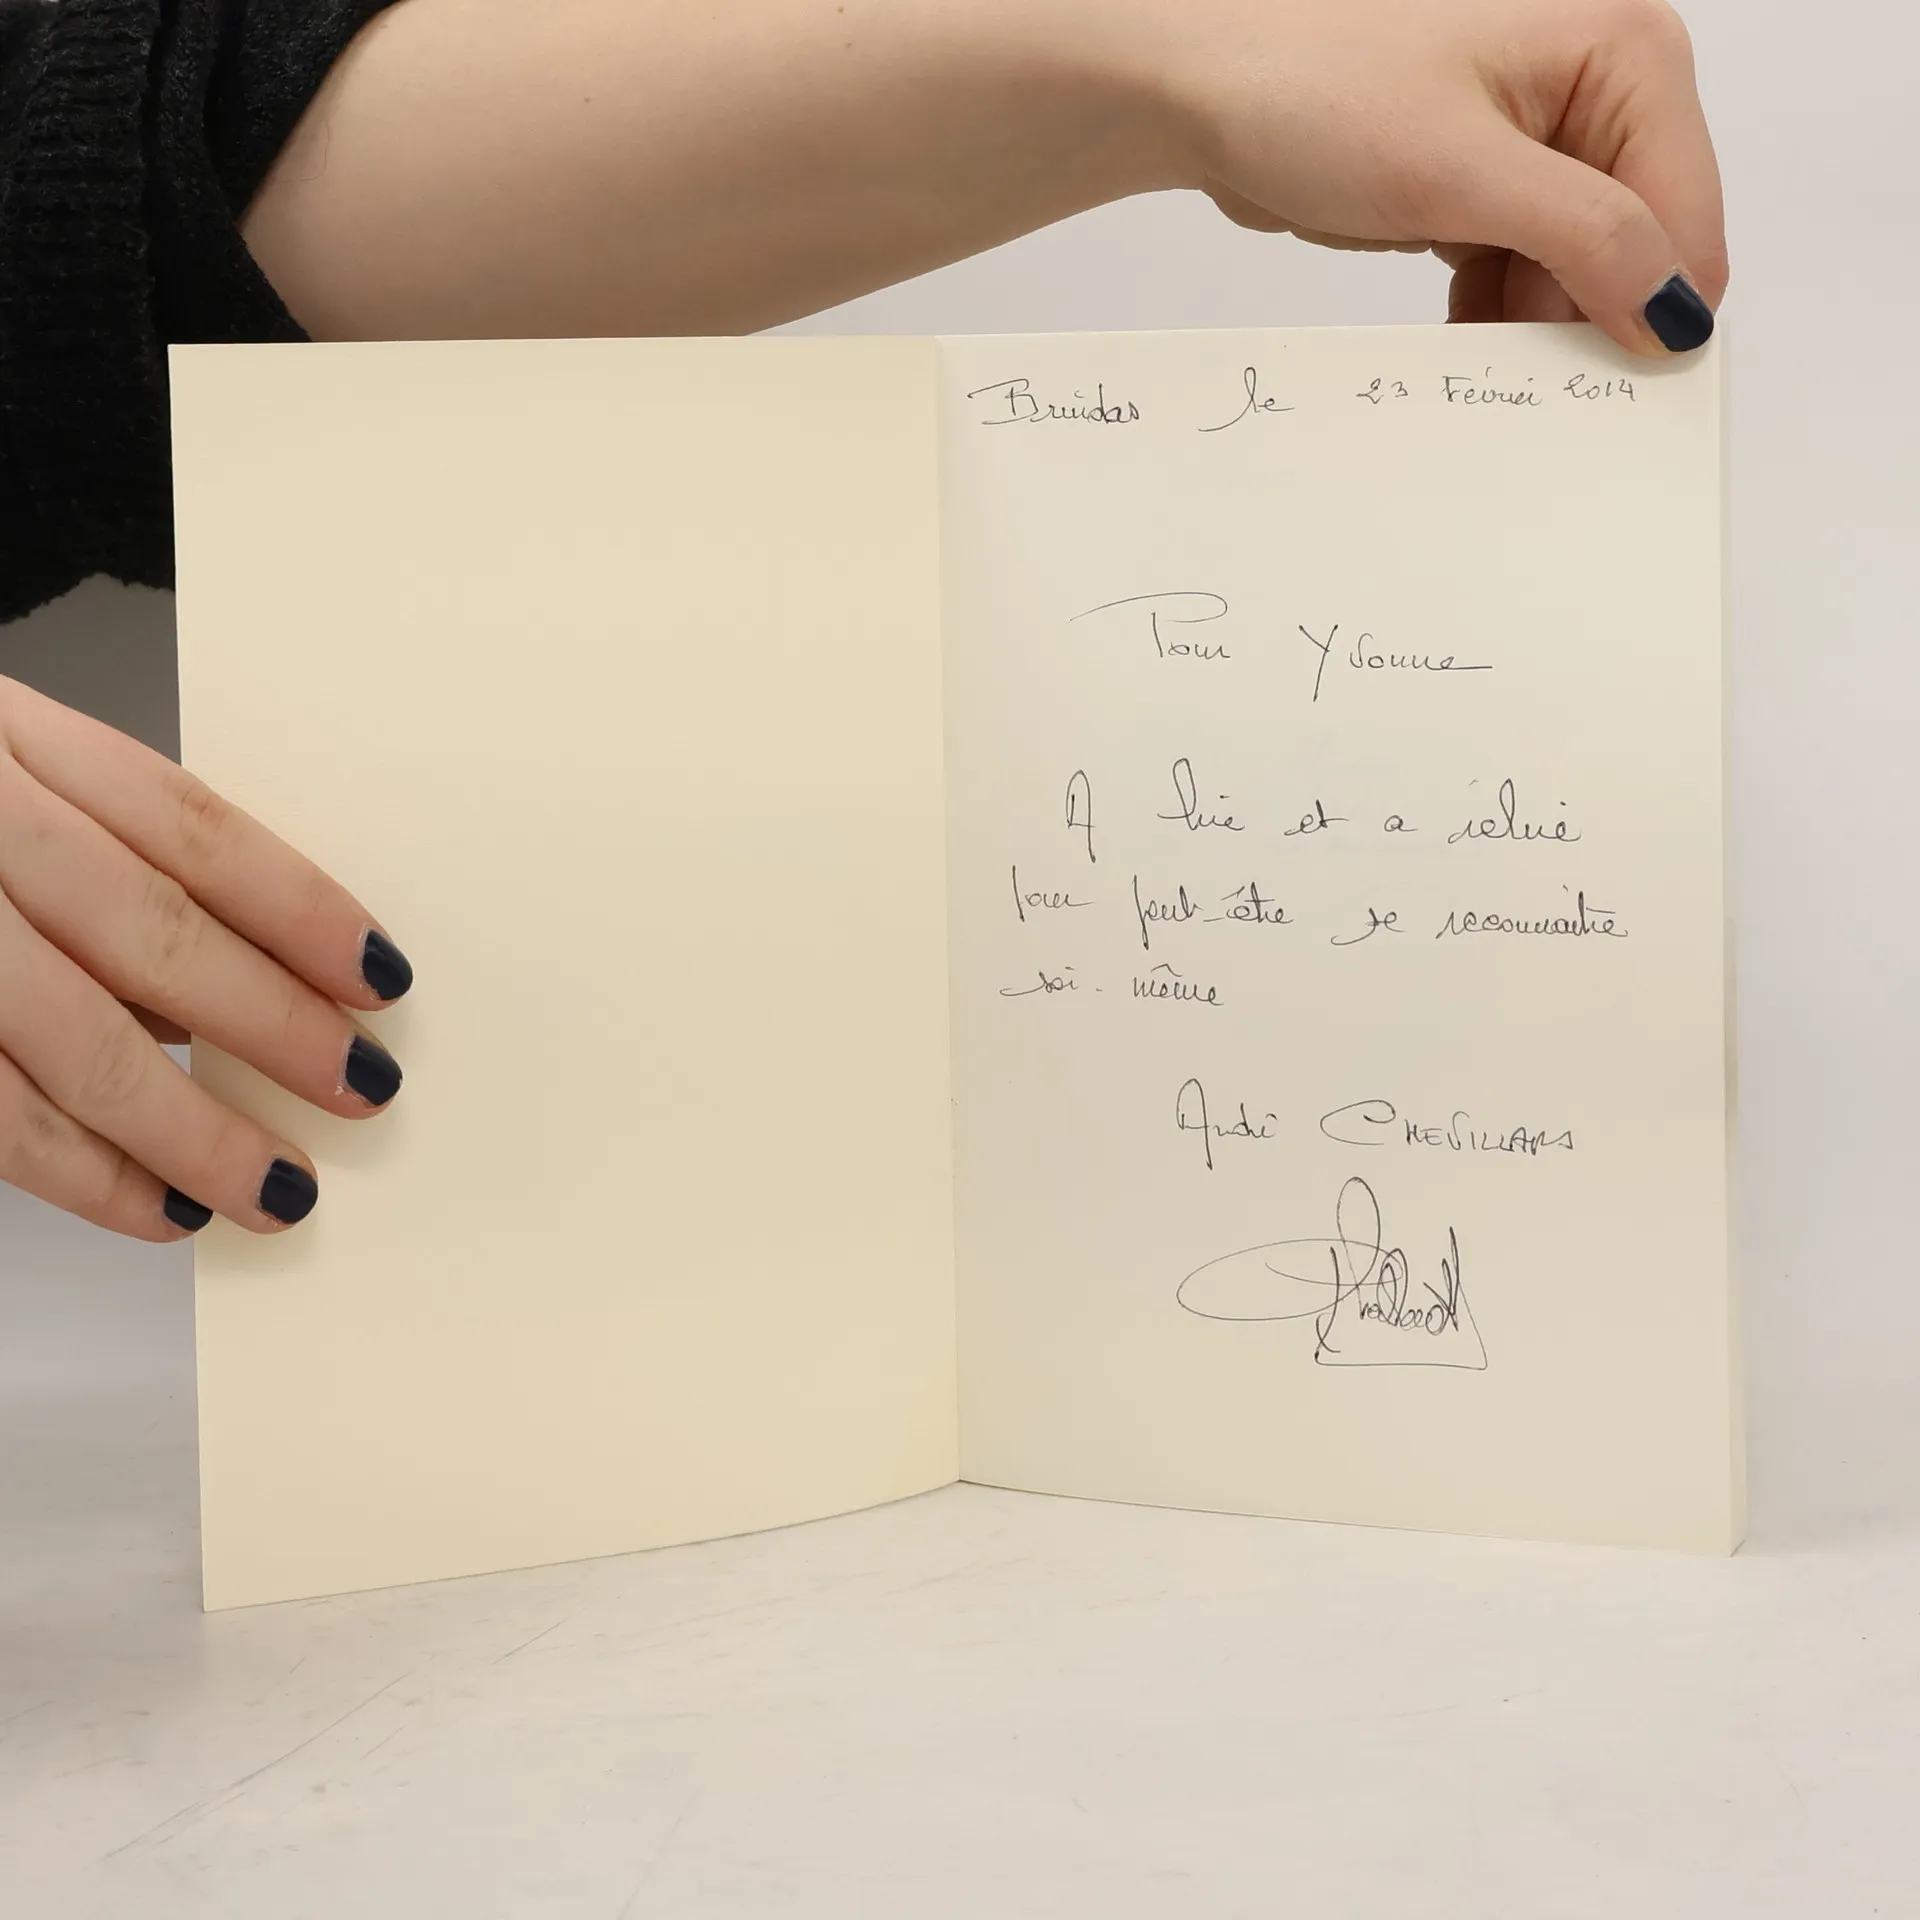 Bruidas le 23 Février 2014
Pour Yvonne
A lire et a relire
pour peut-être se reconnaitre
soi-même
André CHEVILLARD